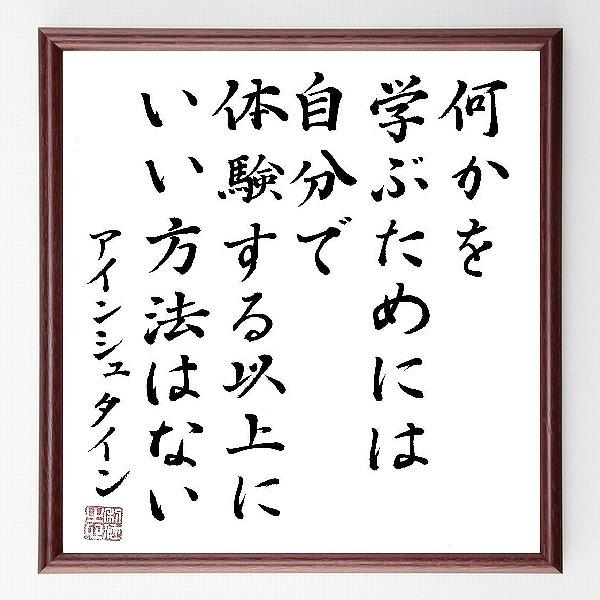 何かを
学ぶためには
自分で
体験する以上に
いい方法はない
アインシュタイン